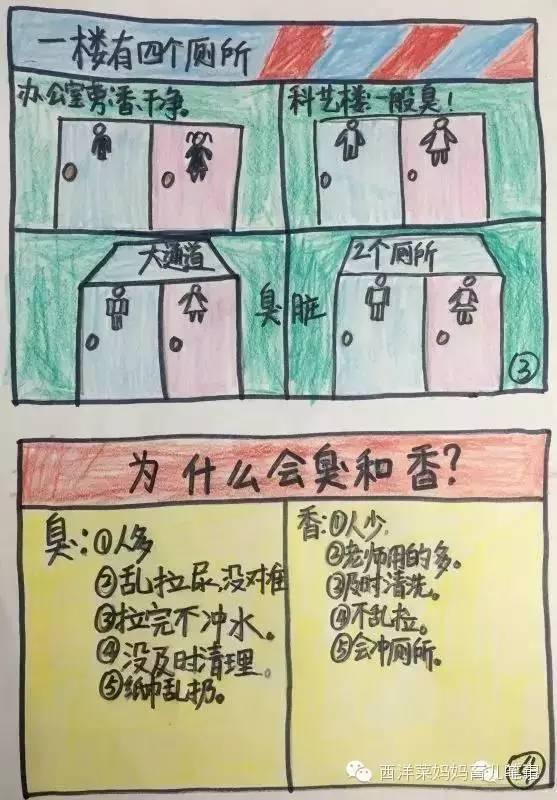 一楼有四个厕所
办公室旁:香、干净。
科艺楼:一般臭!
大通道
2个厕所
臭 脏
③
为什么会臭和香?
臭:①人多
②乱拉尿,没对准
③拉完不冲水。
④没及时清理。
⑤纸巾乱扔。
香:①人少,
②老师用的多。
③及时清洗。
④不乱拉。
⑤会冲厕所。
④
西洋菜妈妈育儿笔记